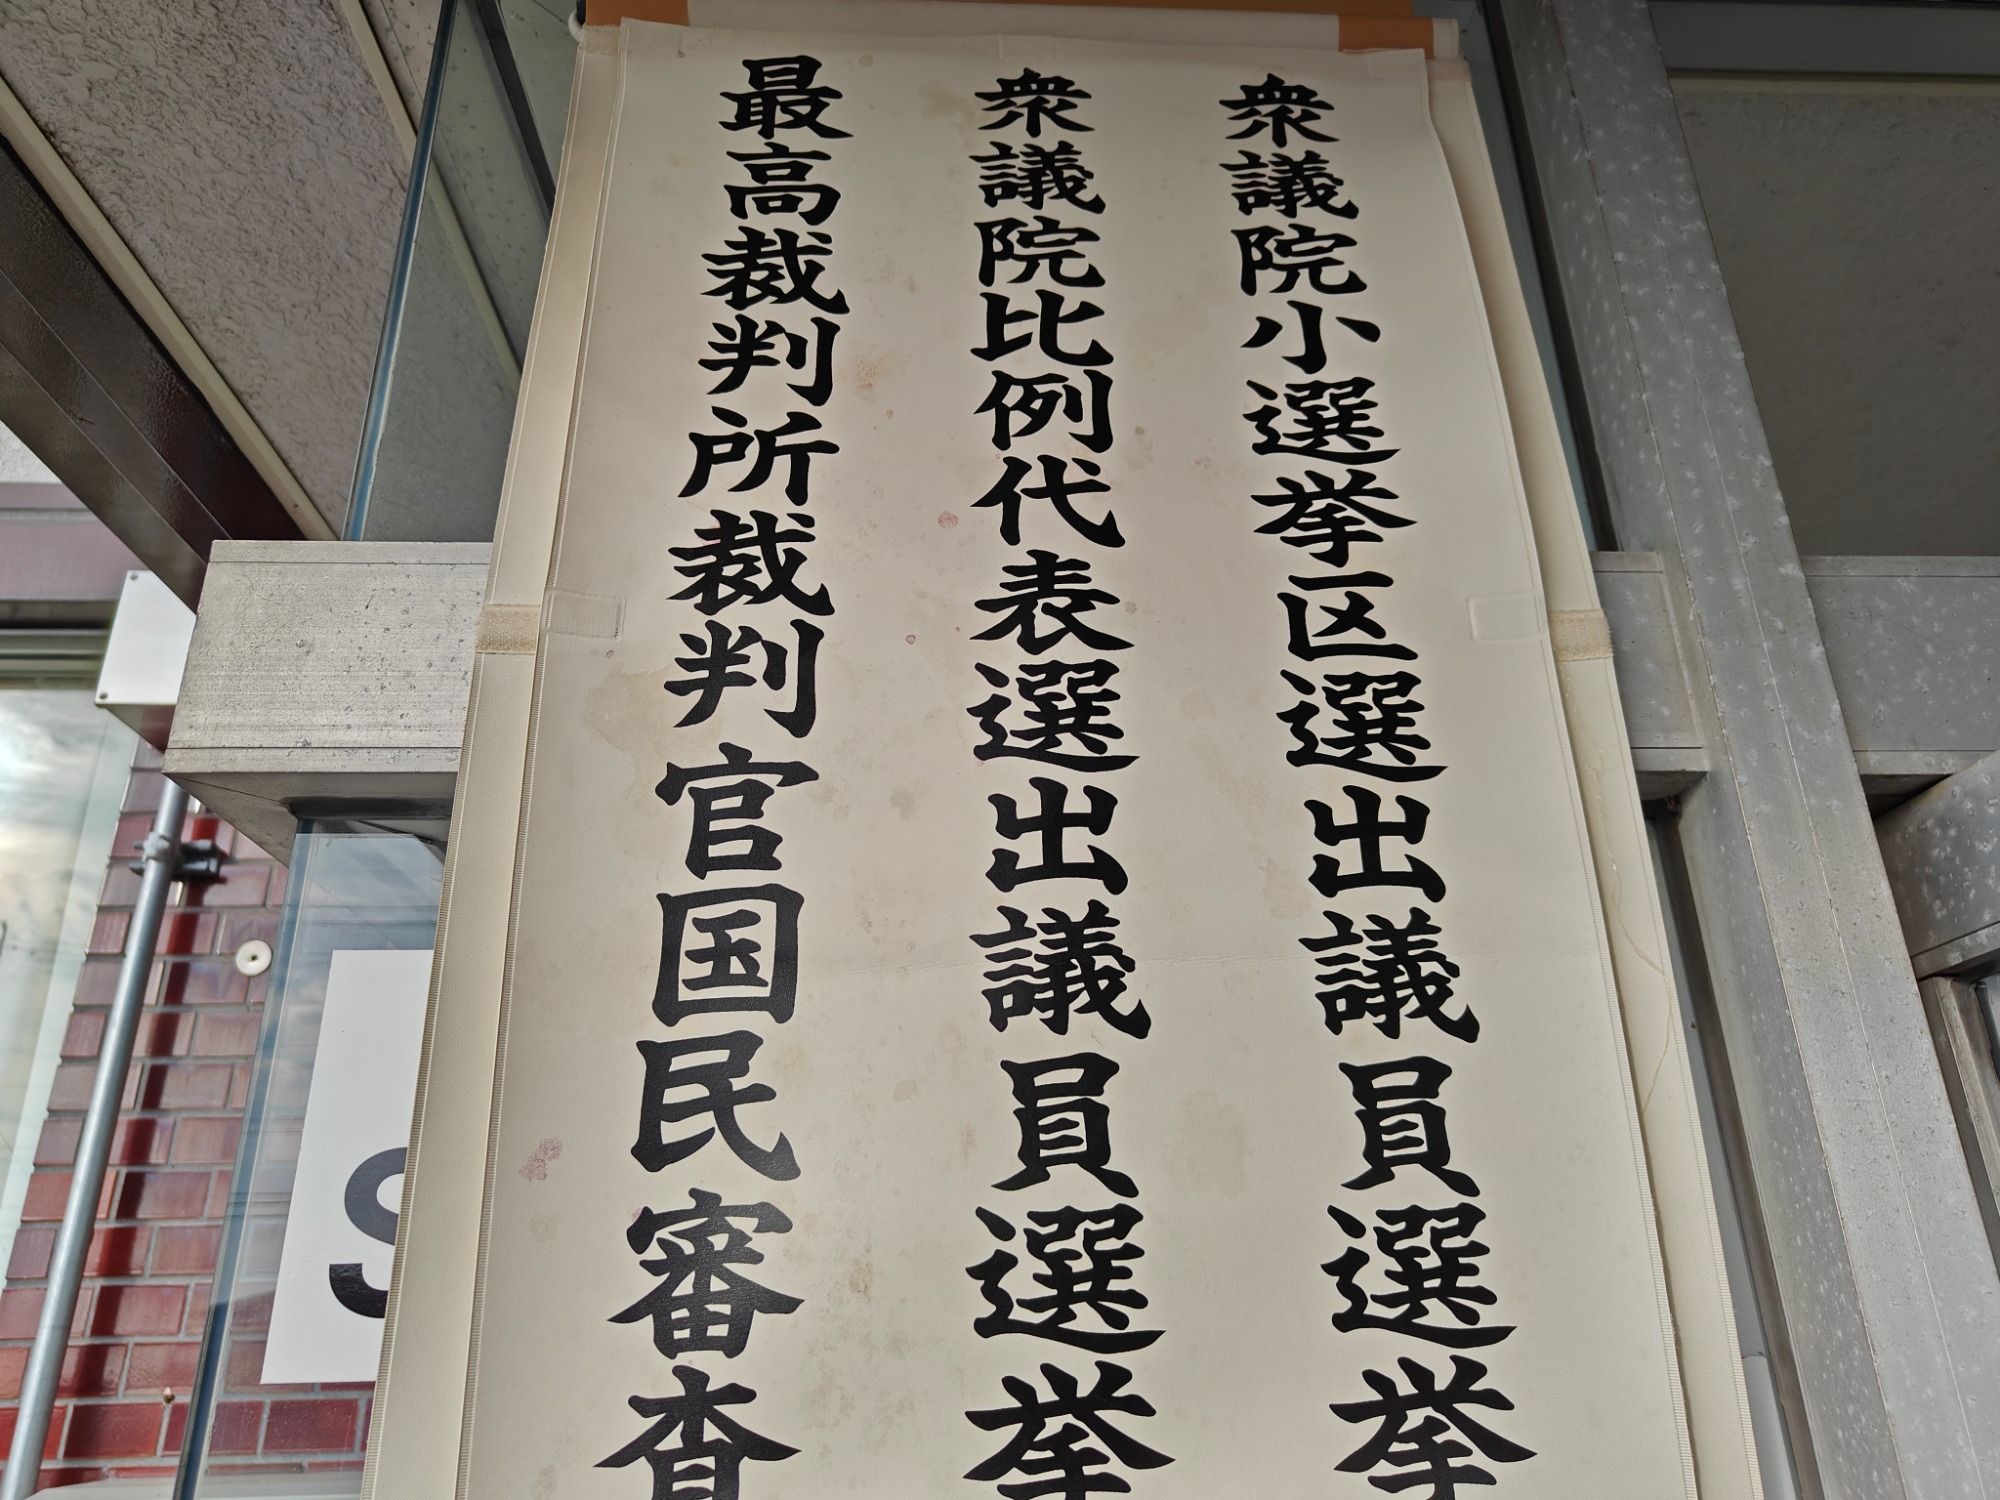 衆議院小選挙区選出議員選挙
衆議院比例代表選出議員選挙
最高裁判所裁判官国民審査
S